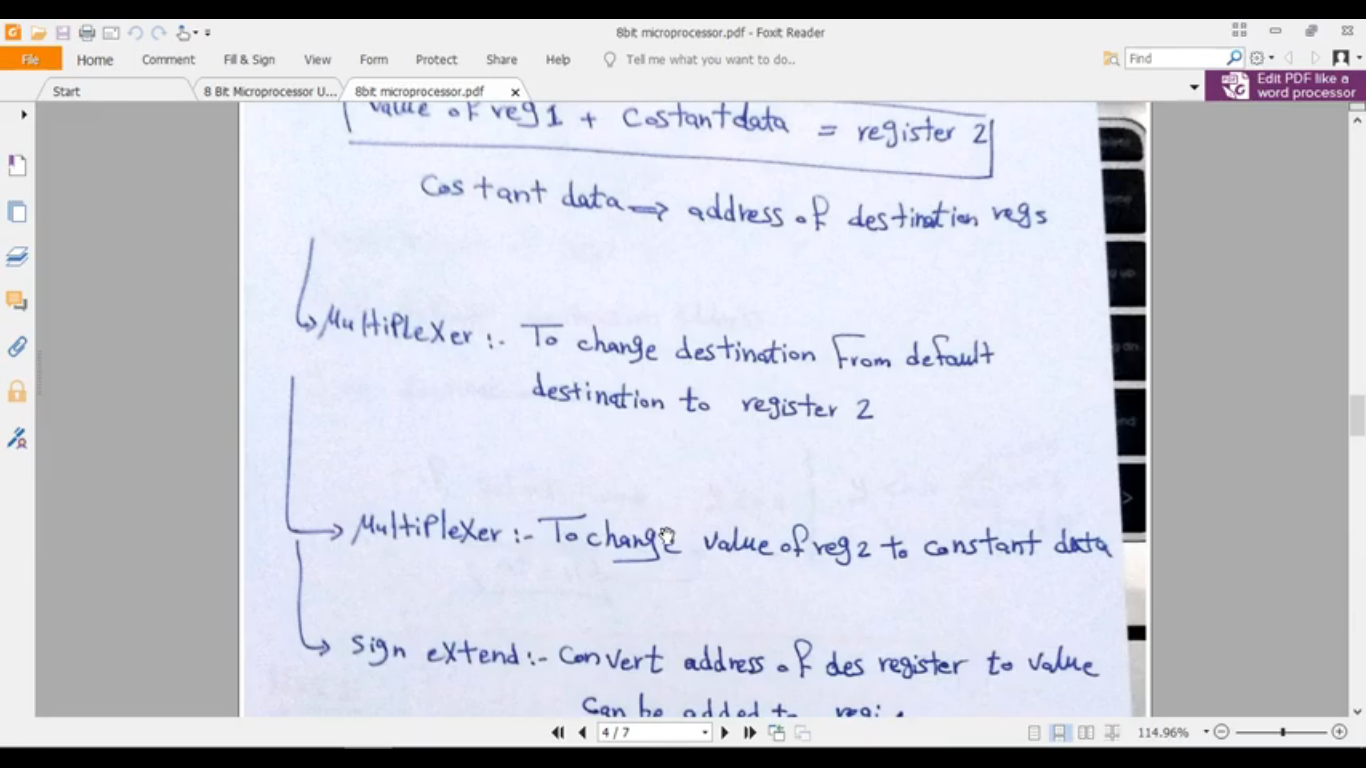 8bit microprocessor.pdf - Foxit Reader
File Home Comment Fill & Sign View Form Protect Share Help Tell me what you want to do.. Find
Edit PDF like a
word processor
Start 8 Bit Microprocessor U... 8bit microprocessor.pdf
value of reg1 + Costantdata = register 2
Costant data ⇒ address of destination regs
Multiplexer :- To change destination From default
destination to register 2
Multiplexer :- To change value of reg2 to constant data
Sign extend :- Convert address of des register to value
can be added to
4 / 7
114.96%